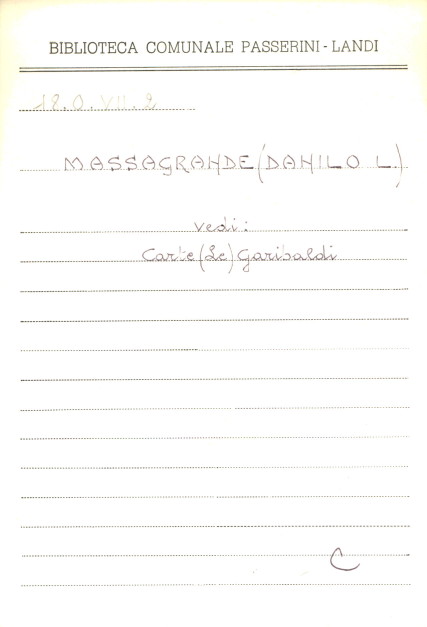 BIBLIOTECA COMUNALE PASSERINI - LANDI
18.O.VII.2
MASSAGRANDE (DANILO L)
vedi:
Carte (Le) Garibaldi
C